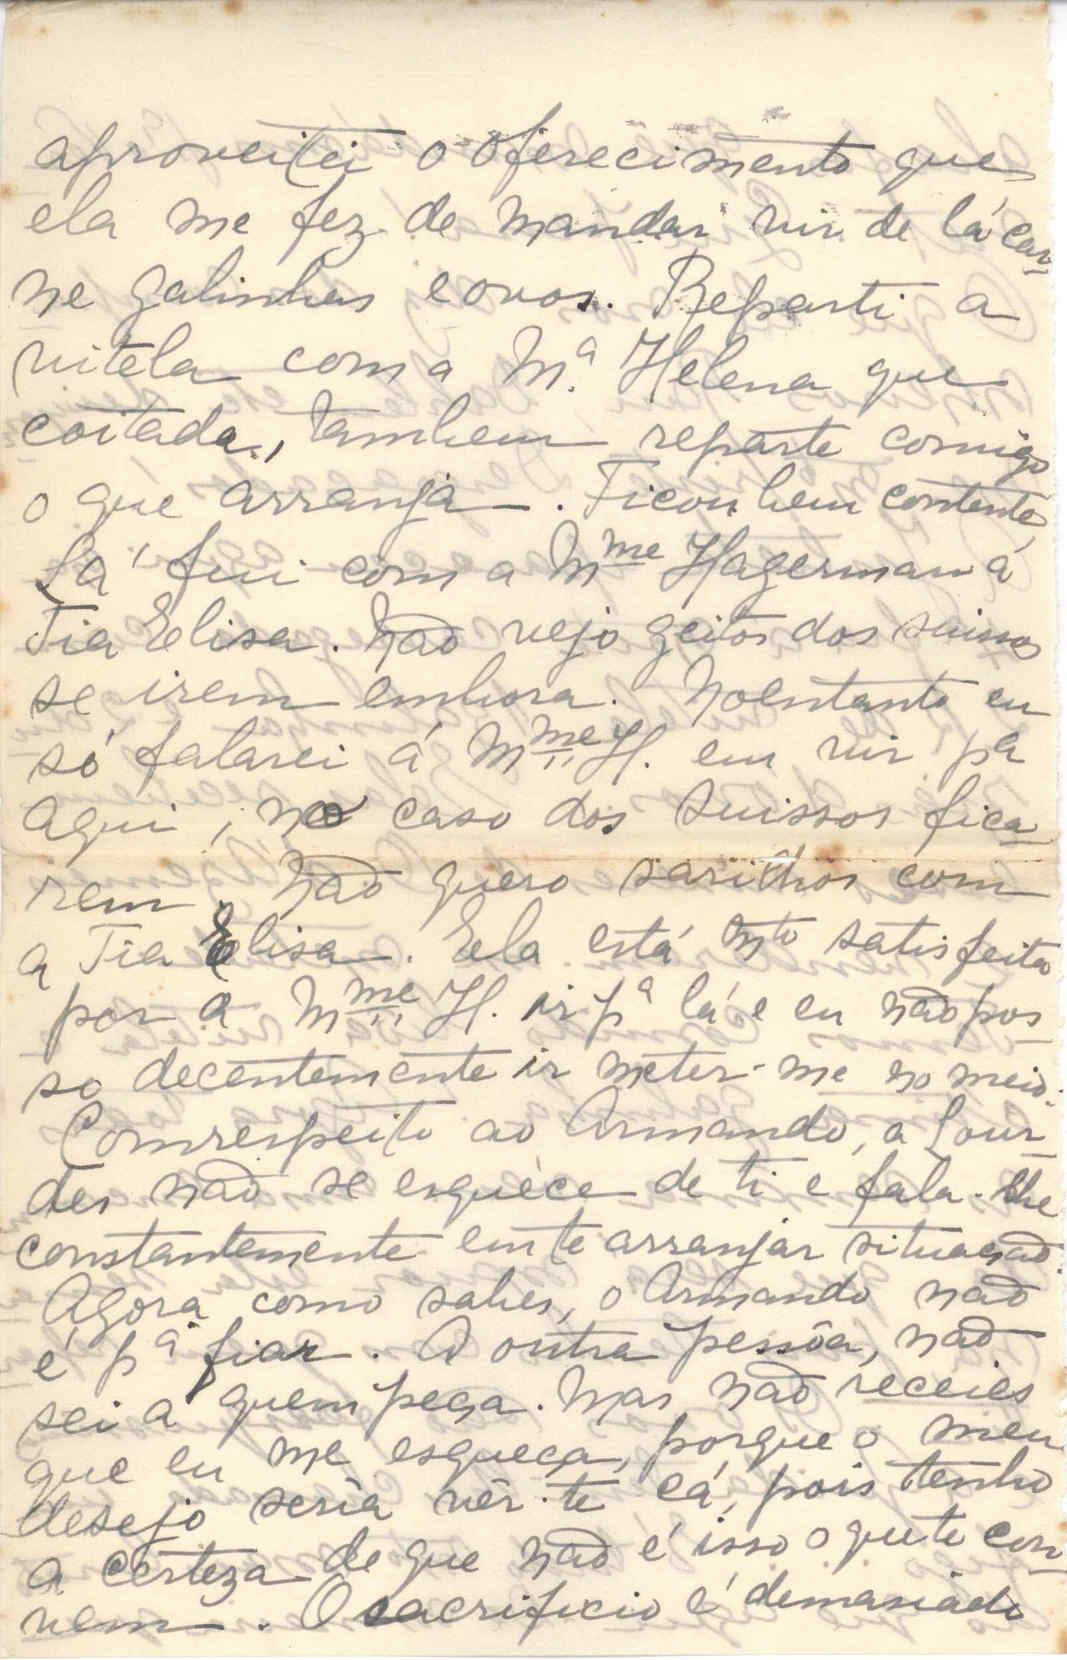 aproveitei o oferecimento que
ela me fez de mandar vir de lá car-
ne galinhas e ovos. Reparti a
vitela com a M.ª Helena que
coitada, tambem reparte comigo
o que arranja. Ficou bem contente.
Lá fui com a Mme Hagerman á
Tia Elisa. Não vejo geitos dos suissos
se irem embora. Noentanto eu
só falarei á Mme H. em vir pª
aqui, no caso dos suissos fica-
rem. Não quero sarilhos com
a Tia Elisa. Ela está mto satisfeita
por a Mme H. ir pª lá e eu não pos-
so decentemente ir meter-me no meio.
Com respeito ao Armando, a Lour-
des não se esquéce de ti e fala-lhe
constantemente em te arranjar situação.
Agora como sabes, o Armando não
é pª fiar. A outra pessôa, não
sei a quem peça. Mas não receies
que eu me esqueça, porque o meu
desejo seria vêr-te cá, pois tenho
a certeza de que não é isso o que te con-
vem. O sacrificio é demasiado